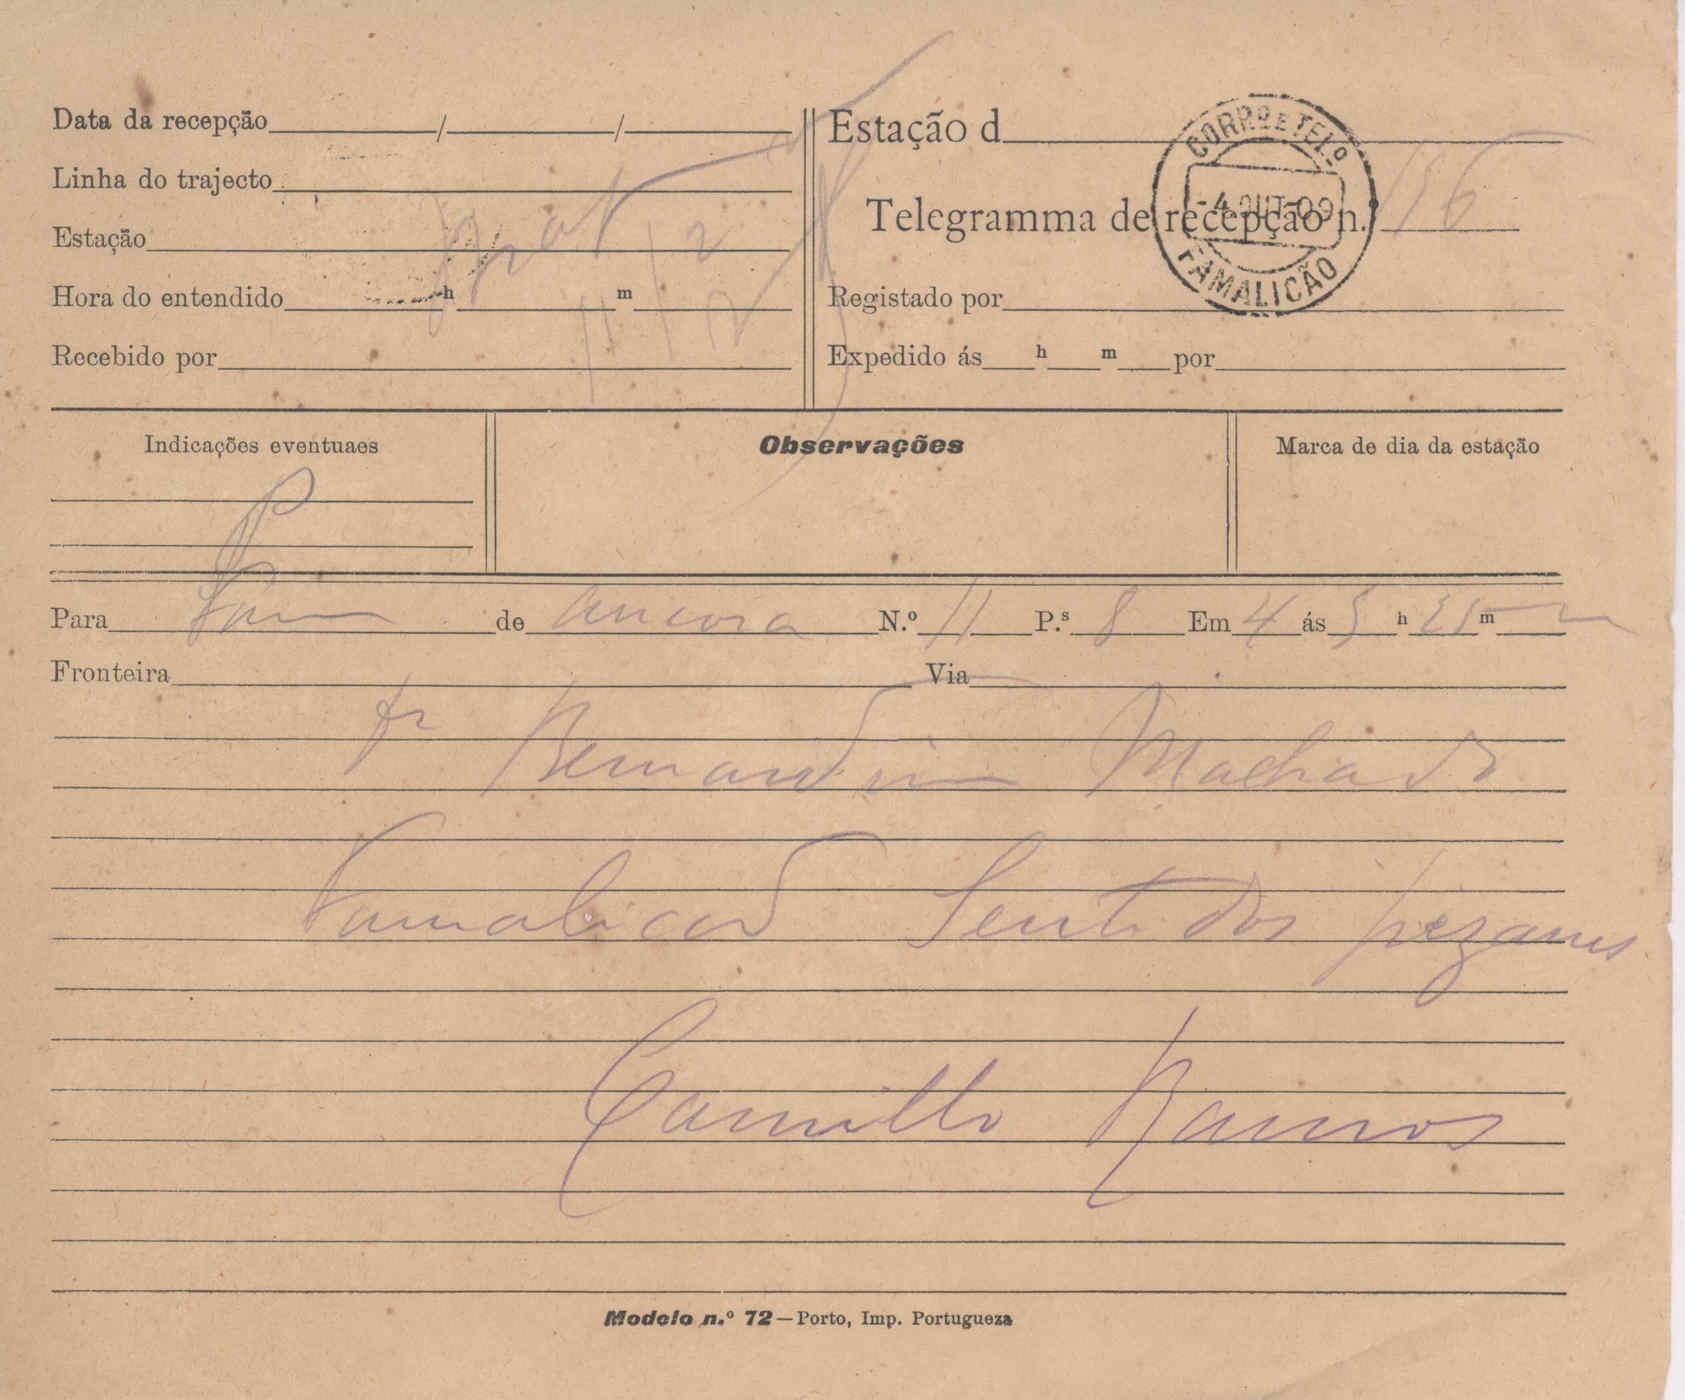 Data da recepção / /
Linha do trajecto
Estação
Hora do entendido h m
Recebido por
Estação d
Telegramma de recepção n. 196
Registado por
Expedido ás h m por
CORRº E TELº
-4 OUT 09
FAMALICÃO
11/12
Indicações eventuaes
Observações
Marca de dia da estação
Para Fam de Ancora N.º 11 P.s 8 Em 4 ás 5 h 25 m
Fronteira Via
Dr Bernardino Machado
Famalicão Sentidos pezames
Camillo Ramos
Modelo n.º 72—Porto, Imp. Portugueza